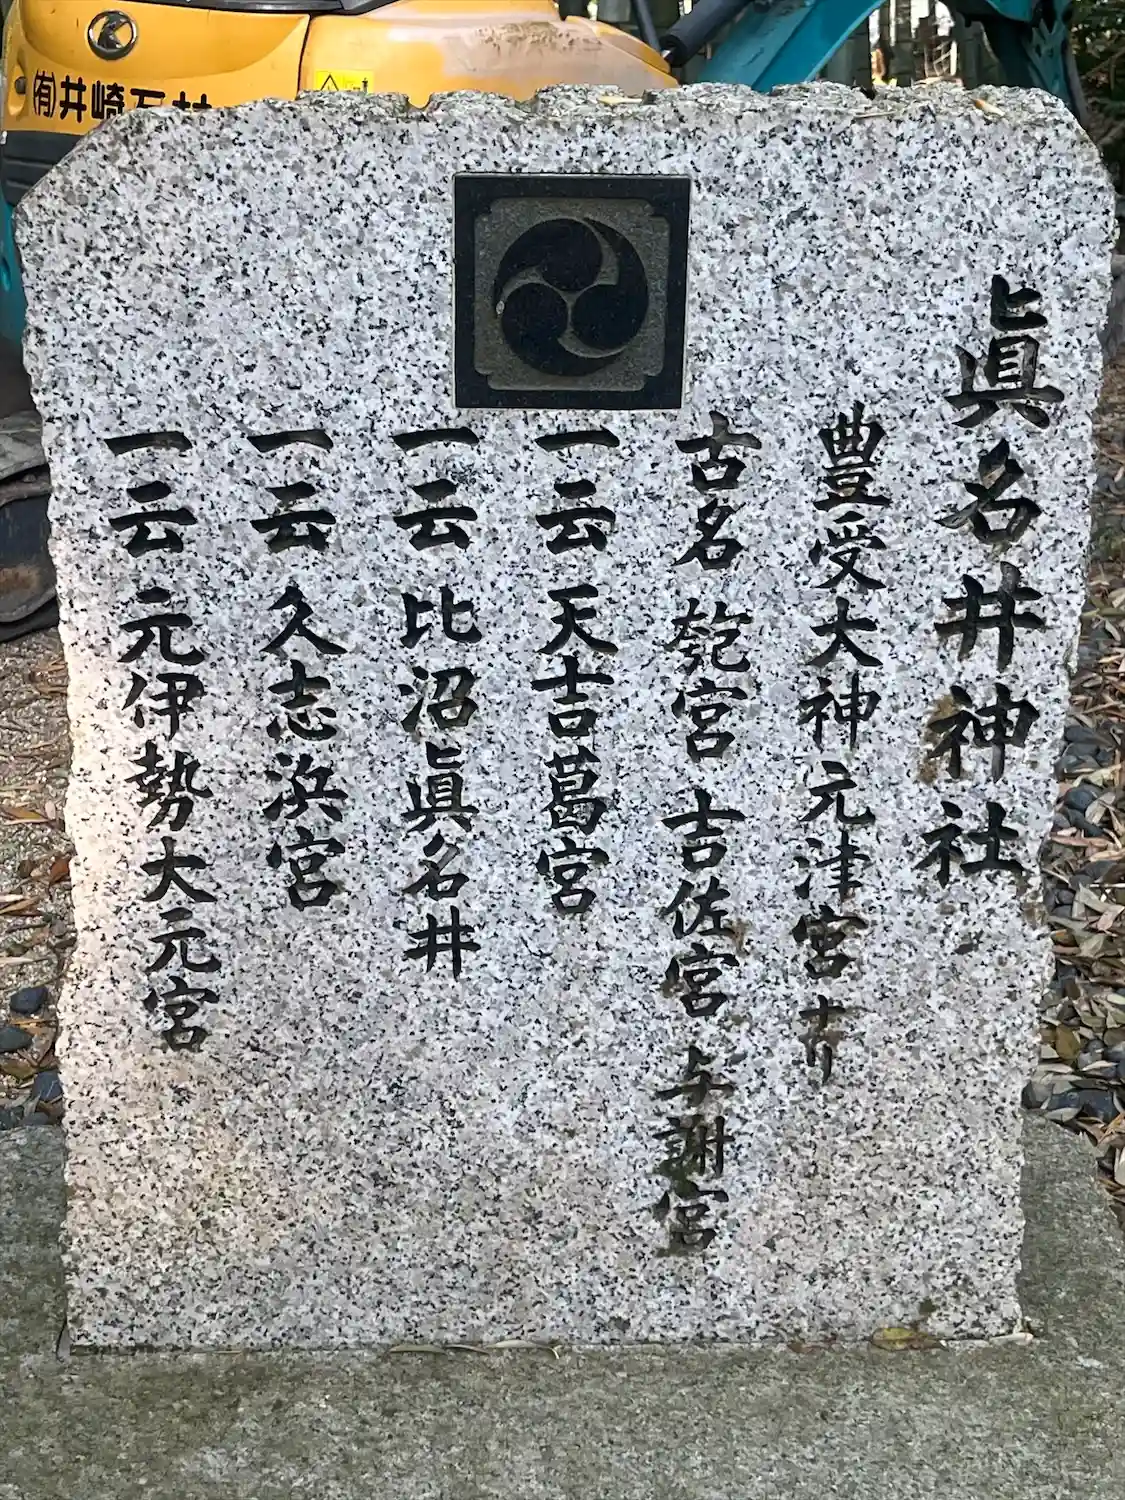 眞名井神社
豊受大神元津宮
古名 匏宮 吉佐宮 与謝宮
一云 天吉葛宮
一云 比沼眞名井
一云 久志浜宮
一云 元伊勢大元宮
(有)井崎石材